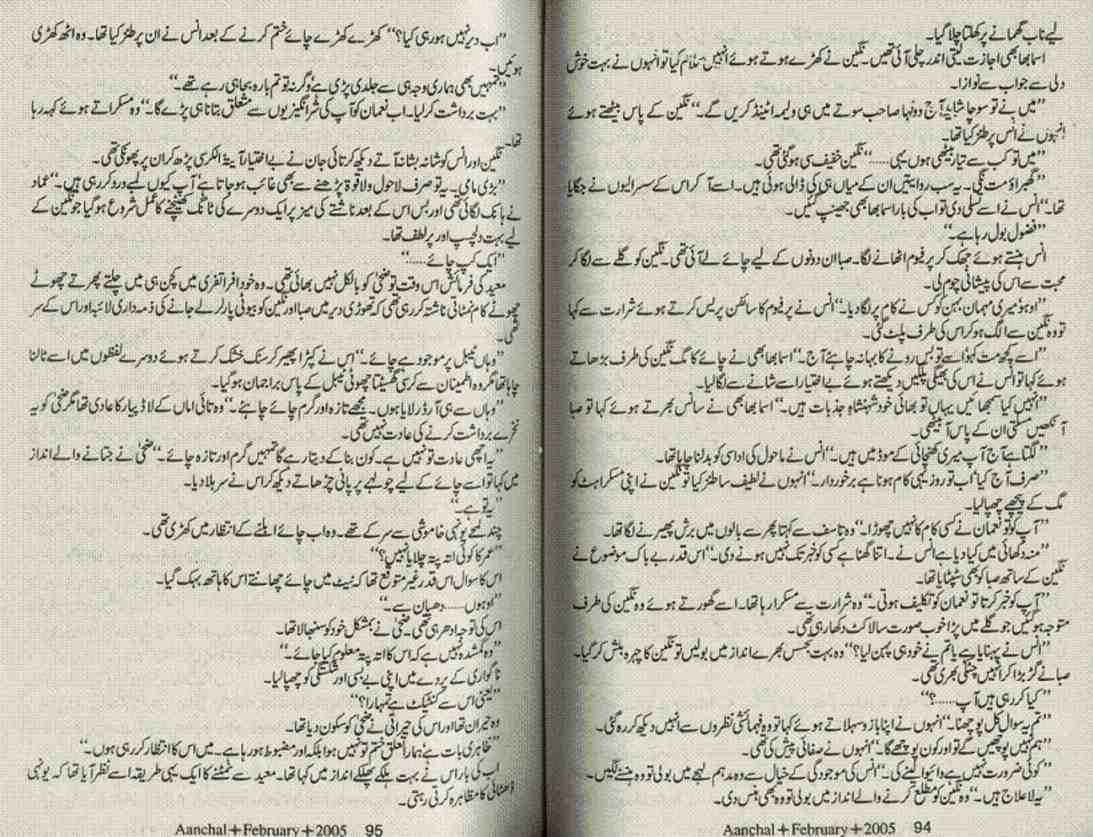 لیے ناب گھمانے پر کھلتا چلا گیا۔
اسما بھابھی اجازت لیتی اندر چلی آئی تھیں۔ نگین نے کھڑے ہوتے ہوئے انہیں سلام کیا تو انہوں نے بہت خوش
دلی سے جواب سے نوازا۔
”میں نے تو سوچا شاید آج دولہا صاحب سوتے میں ہی ولیمہ اٹینڈ کریں گے۔“ نگین کے پاس بیٹھتے ہوئے
انہوں نے انس پر طنز کیا تھا۔
”میں تو کب سے تیار بیٹھی ہوں یہی......“ نگین خفیف سی ہوگئی تھی۔
”گھبراؤ مت نگی۔ یہ سب روایتیں ان کے میاں ہی کی ڈالی ہوئی ہیں۔ اسے آ کر اس کے سسرالیوں نے جگایا
تھا۔“ انس نے اسے تسلی دی تو اب کی بار اسما بھابھی جھینپ گئیں۔
”فضول بول رہا ہے۔“
انس ہنستے ہوئے جھک کر پرفیوم اٹھانے لگا۔ صبا ان دونوں کے لیے چائے لے آئی تھی۔ نگین کو گلے سے لگا کر
محبت سے اس کی پیشانی چوم لی۔
”اوہو میری مہمان بہن کو کس نے کام پر لگا دیا۔“ انس نے پرفیوم کا سائفن پریس کرتے ہوئے شرارت سے کہا
تو وہ نگین سے الگ ہو کر اس کی طرف پلٹ گئی۔
”اسے کچھ مت کہو اسے تو بس رونے کا بہانہ چاہئے آج۔“ اسما بھابھی نے چائے کا مگ نگین کی طرف بڑھاتے
ہوئے کہا تو انس نے اس کی بھیگی پلکیں دیکھتے ہوئے بے اختیار اسے شانے سے لگا لیا۔
”انہیں کیا سمجھائیں یہاں تو بھائی خود شہنشاہِ جذبات ہیں۔“ اسما بھابھی نے سانس بھرتے ہوئے کہا تو صبا
آنکھیں مسلتی ان کے پاس آ بیٹھی۔
”لگتا ہے آج آپ میری کھنچائی کے موڈ میں ہیں۔“ انس نے ماحول کی اداسی کو بدلنا چاہا تھا۔
”صرف آج کیا اب تو روز یہی کام ہونا ہے برخوردار۔“ انہوں نے لطیف سا طنز کیا تو نگین نے اپنی مسکراہٹ کو
مگ کے پیچھے چھپا لیا۔
”آپ کو تو نعمان نے کسی کام کا نہیں چھوڑا۔“ وہ تاسف سے کہتا پھر سے بالوں میں برش پھیرنے لگا تھا۔
”منہ دکھائی میں کیا دیا ہے انس نے۔ اتنا گھنا ہے کسی کو خبر تک نہیں ہونے دی۔“ اس قدر بے باک موضوع نے
نگین کے ساتھ صبا کو بھی سٹپٹایا تھا۔
”آپ کو خبر کرتا تو نعمان کو تکلیف ہوتی۔“ وہ شرارت سے مسکرا رہا تھا۔ اسے گھورتے ہوئے وہ نگین کی طرف
متوجہ ہوگئیں جو گلے میں پڑا خوب صورت سا لاکٹ دکھا رہی تھی۔
”انس نے پہنایا ہے یا تم نے خود ہی پہن لیا؟“ وہ بہت تجسس بھرے انداز میں بولیں تو نگین کا چہرہ بلش کر گیا۔
صبا نے گڑبڑا کر انہیں چٹکی بھری تھی۔
”کیا کر رہی ہیں آپ......؟“
”تم یہ سوال کل پوچھنا۔“ انہوں نے اپنا بازو سہلاتے ہوئے کہا تو وہ فہمائشی نظروں سے انہیں دیکھ کر رہ گئی۔
”ہم نہیں پوچھیں گے تو اور کون پوچھے گا۔“ انہوں نے صفائی پیش کی تھی۔
”کوئی ضرورت نہیں ہے وائیوا لینے کی۔“ انس کی موجودگی کے خیال سے وہ مدہم لہجے میں بولی تو وہ ہنسنے لگیں۔
”یہ لا علاج ہیں۔“ وہ نگین کو مطلع کرنے والے انداز میں بولی تو وہ بھی ہنس دی۔
Aanchal+February+2005 94
”اب دیر نہیں ہو رہی کیا؟“ کھڑے کھڑے چائے ختم کرنے کے بعد انس نے ان پر طنز کیا تھا۔ وہ اٹھ کھڑی
ہوئیں۔
”تمہیں بھی ہماری وجہ ہی سے جلدی پڑی ہے وگرنہ تو تم بارہ بجا ہی رہے تھے۔“
”بہت برداشت کر لیا۔ اب نعمان کو آپ کی شر انگیزیوں سے متعلق بتانا ہی پڑے گا۔“ وہ مسکراتے ہوئے کہہ رہا
تھا۔
نگین اور انس کو شانہ بشانہ آتے دیکھ کر تائی جان نے بے اختیار آیۃ الکرسی پڑھ کر ان پر پھونکی تھی۔
”بڑی مامی۔ یہ تو صرف لاحول ولا قوۃ پڑھنے سے بھی غائب ہو جاتا ہے آپ کیوں لمبے ورد کر رہی ہیں۔“ عماد
نے ہانک لگائی تھی اور بس اس کے بعد ناشتے کی میز پر ایک دوسرے کی ٹانگ کھینچنے کا عمل شروع ہو گیا جو نگین کے
لیے بہت دلچسپ اور پر لطف تھا۔
”ایک کپ چائے......“
معید کی فرمائش اس وقت تو ضحیٰ کو بالکل نہیں بھائی تھی۔ وہ خود افراتفری میں کچن ہی میں چلتے پھرتے چھوٹے
چھوٹے کام نمٹاتی ناشتہ کر رہی تھی کہ تھوڑی دیر میں صبا اور نگین کو بیوٹی پارلر لے جانے کی ذمہ داری لائبہ اور اس کے سر
تھی۔
”وہاں ٹیبل پر موجود ہے چائے۔“ اس نے کپڑا پھیر کر سنک خشک کرتے ہوئے دوسرے لفظوں میں اسے ٹالنا
چاہا تھا مگر وہ اطمینان سے کرسی گھسیٹتا چھوٹی ٹیبل کے پاس براجمان ہو گیا۔
”وہاں سے ہی آرڈر لایا ہوں۔ مجھے تازہ اور گرم چائے چاہئے۔“ وہ تائی اماں کے لاڈ پیار کا عادی تھا مگر ضحیٰ کو یہ
نخرے برداشت کرنے کی عادت نہیں تھی۔
”یہ اچھی عادت تو نہیں ہے۔ کون بنا کے دیتا رہے گا تمہیں گرم اور تازہ چائے۔“ ضحیٰ نے جتانے والے انداز
میں کہا تو اسے چائے کے لیے چولہے پر پانی چڑھاتے دیکھ کر اس نے سر ہلا دیا۔
”یہ تو ہے۔“
چند لمحے یونہی خاموشی سے سرکے تھے۔ وہ اب چائے ابلنے کے انتظار میں کھڑی تھی۔
”عمر کا کوئی اتہ پتہ چلا یا نہیں؟“
اس کا سوال اس قدر غیر متوقع تھا کہ نیٹ میں چائے چھانتے اس کا ہاتھ بہک گیا۔
”اوہوں...... دھیان سے۔“
اس کی توجہ ادھر ہی تھی۔ ضحیٰ نے بمشکل خود کو سنبھالا تھا۔
”وہ گمشدہ نہیں ہے کہ اس کا اتہ پتہ معلوم کیا جائے۔“
ناگواری کے پردے میں اپنی بے بسی اور شکستگی کو چھپا لیا۔
”یعنی اس سے کنٹیکٹ ہے تمہارا؟“
وہ حیران تھا اور اس کی حیرانی نے ضحیٰ کو سکون دیا تھا۔
”ظاہری بات ہے ہمارا تعلق ختم تو نہیں ہوا بلکہ اور مضبوط ہو رہا ہے۔ میں اس کا انتظار کر رہی ہوں۔“
اب کی بار اس نے بہت ہلکے پھلکے انداز میں کہا تھا۔ معید سے نمٹنے کا ایک یہی طریقہ اسے نظر آیا تھا کہ یونہی
ڈھٹائی کا مظاہرہ کرتی رہتی۔
Aanchal+February+2005 95